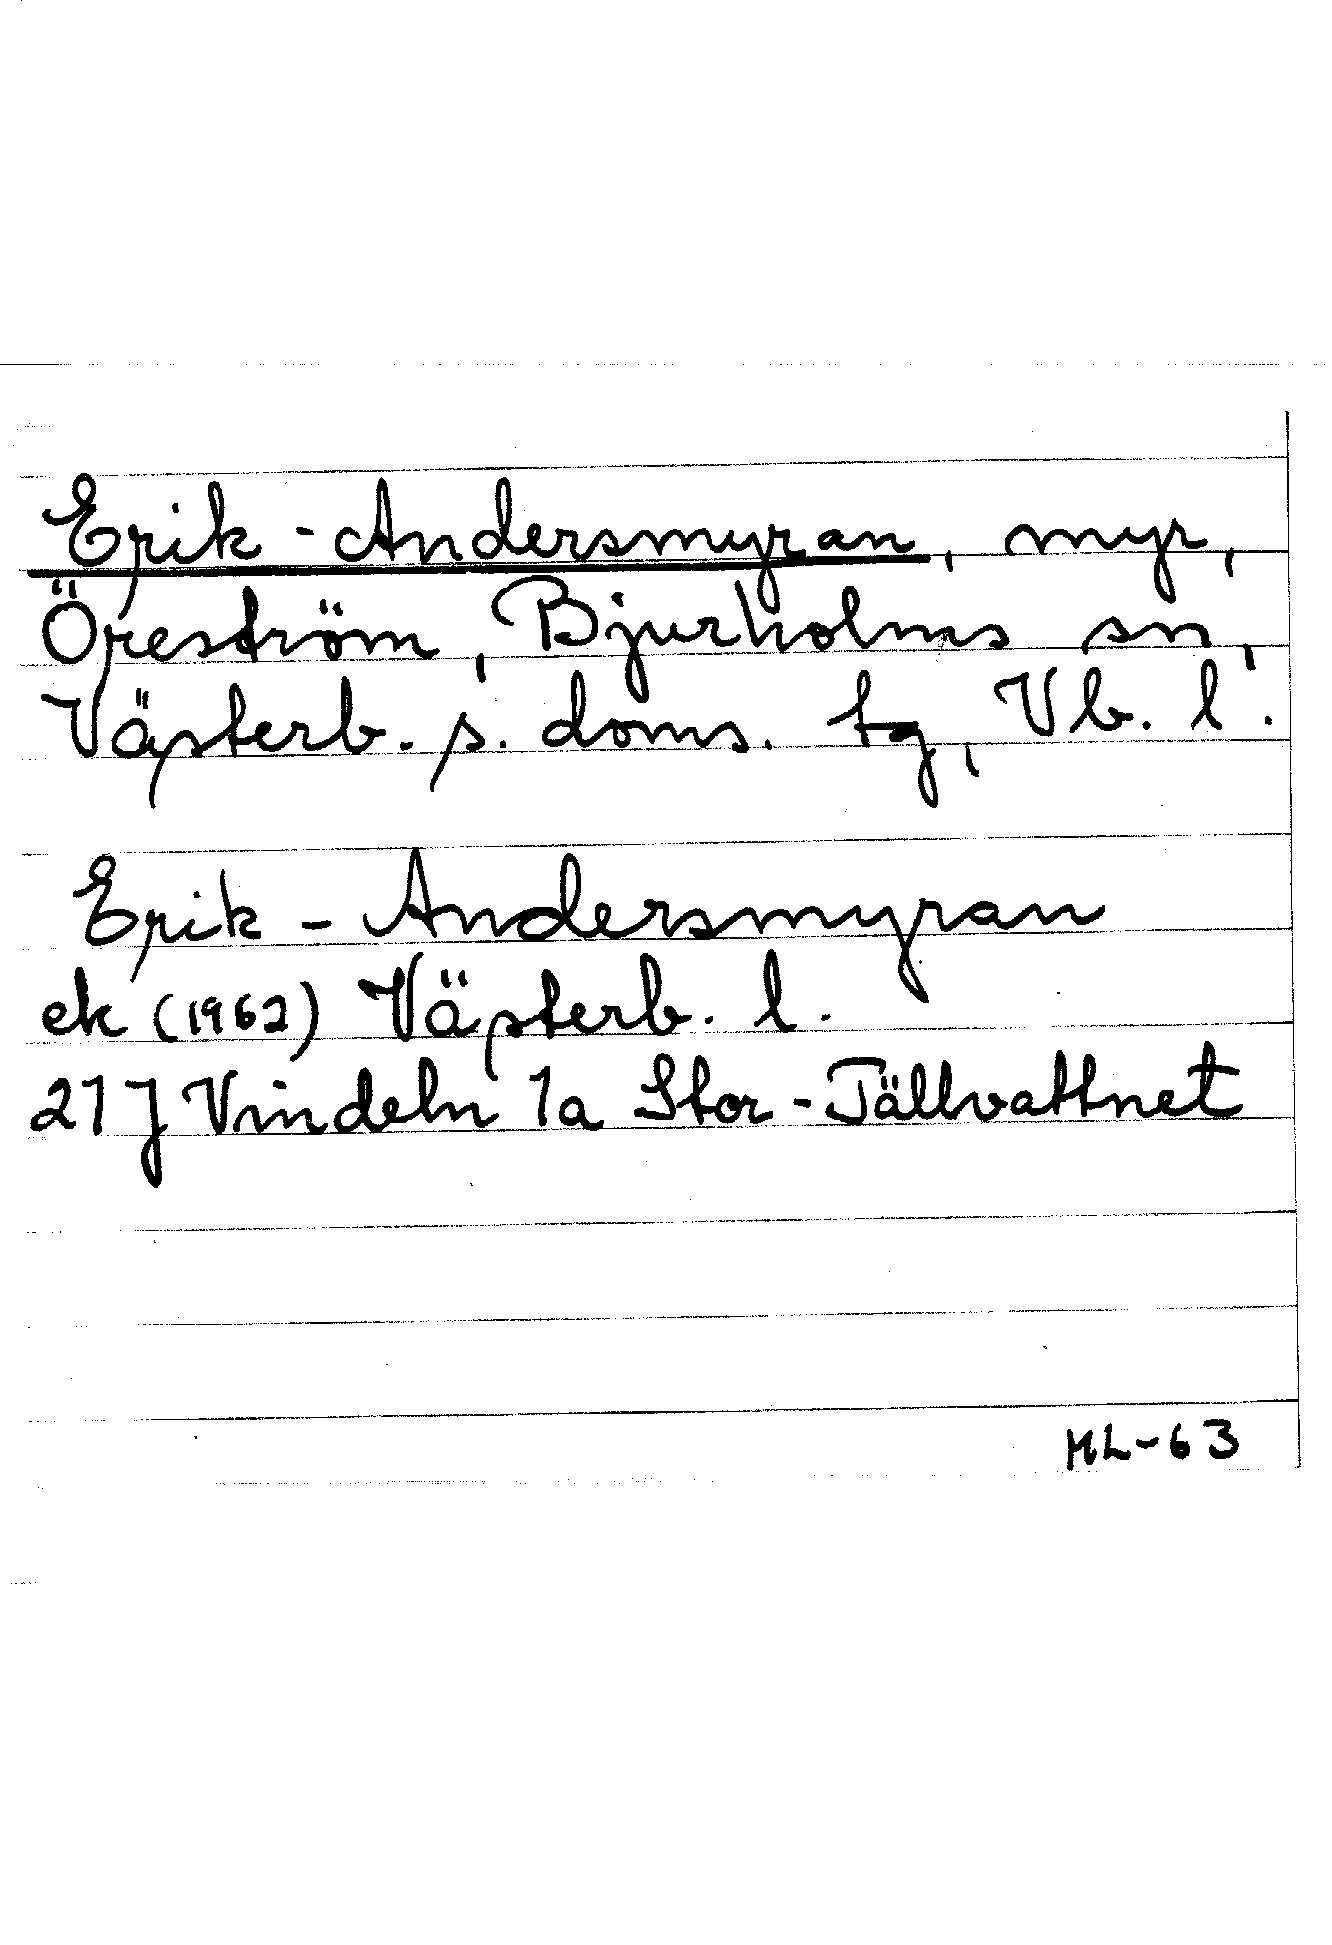 Erik-Andersmyran, myr,
Öreström, Bjurholms sn,
Västerb. s. doms. tg, Vb. l.
Erik-Andersmyran
ek (1962) Västerb. l.
21J Vindeln 1a Stor-Tällvattnet
ML-63